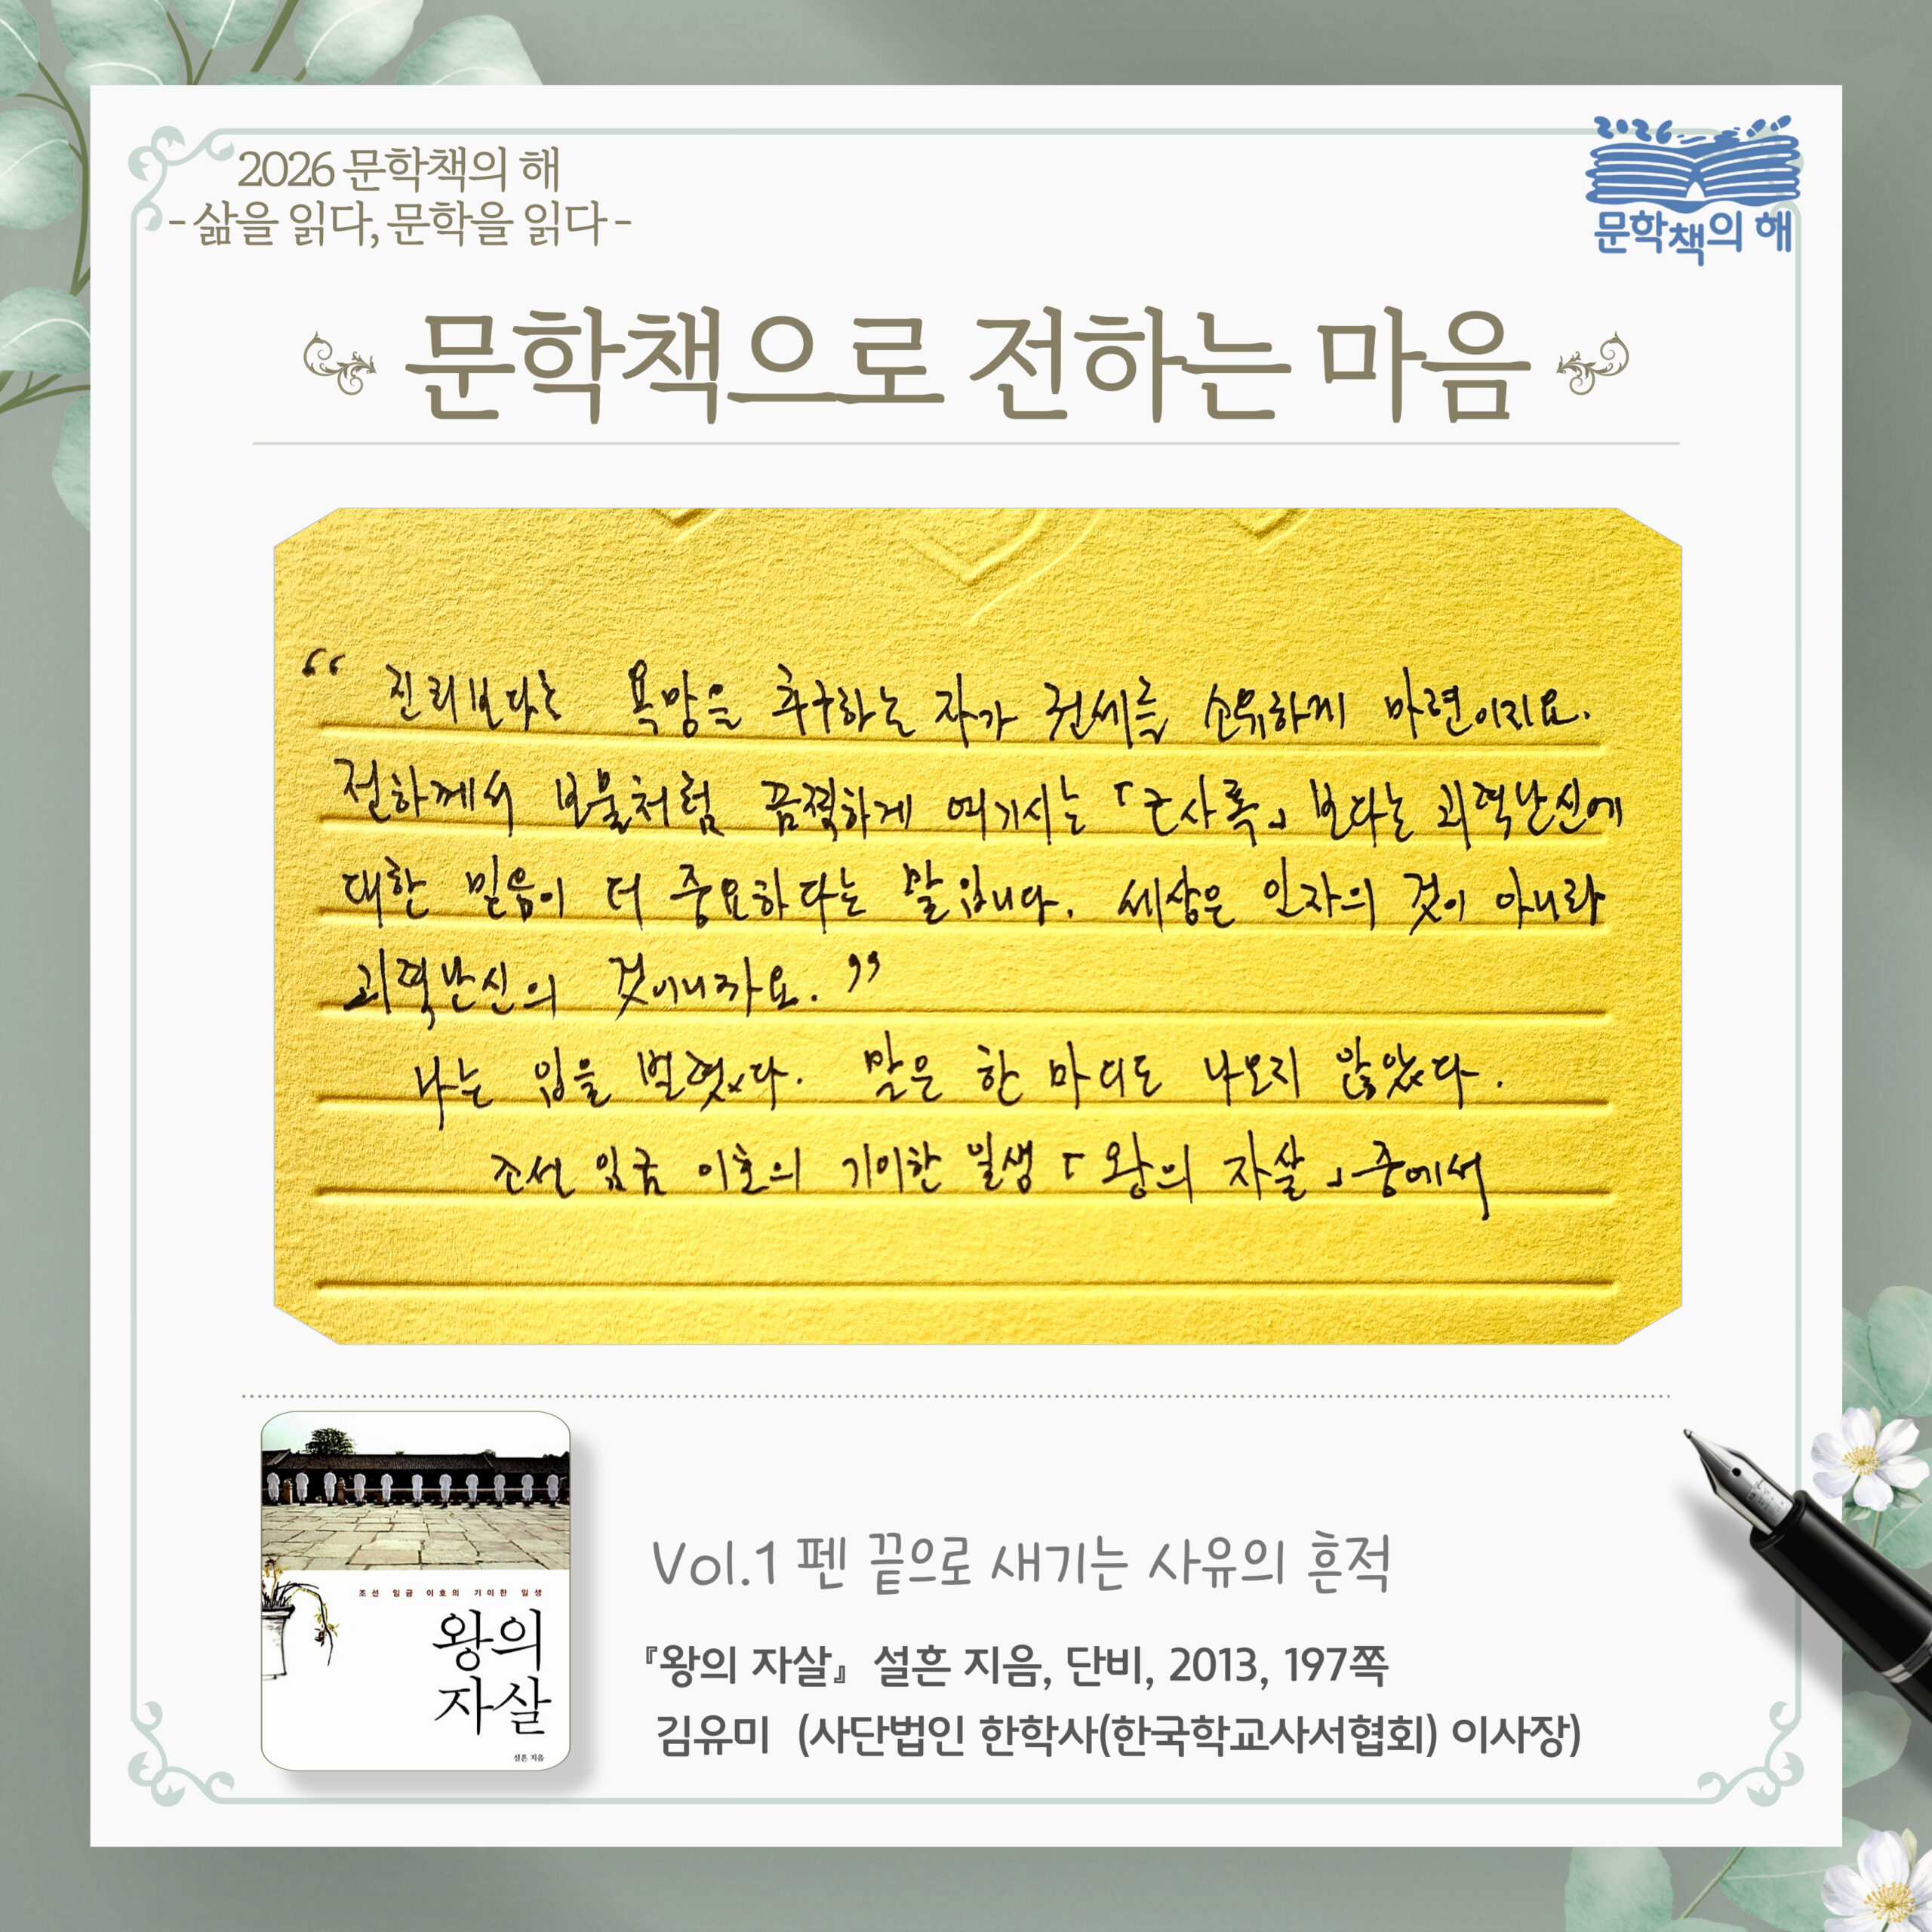 2026 문학책의 해
- 삶을 읽다, 문학을 읽다 -
2026
문학책의 해
문학책으로 전하는 마음
“ 진리보다는 욕망을 추구하는 자가 권세를 소유하게 마련이지요.
전하께서 보물처럼 끔찍하게 여기시는 「근사록」 보다는 괴력난신에
대한 믿음이 더 중요하다는 말입니다. 세상은 인자의 것이 아니라
괴력난신의 것이니까요. ”
나는 입을 벌렸다. 말은 한 마디도 나오지 않았다.
조선 임금 이호의 기이한 일생 「왕의 자살」 중에서
조선 임금 이호의 기이한 일생
왕의
자살
설흔 지음
Vol.1 펜 끝으로 새기는 사유의 흔적
『왕의 자살』 설흔 지음, 단비, 2013, 197쪽
김유미 (사단법인 한학사(한국학교사서협회) 이사장)